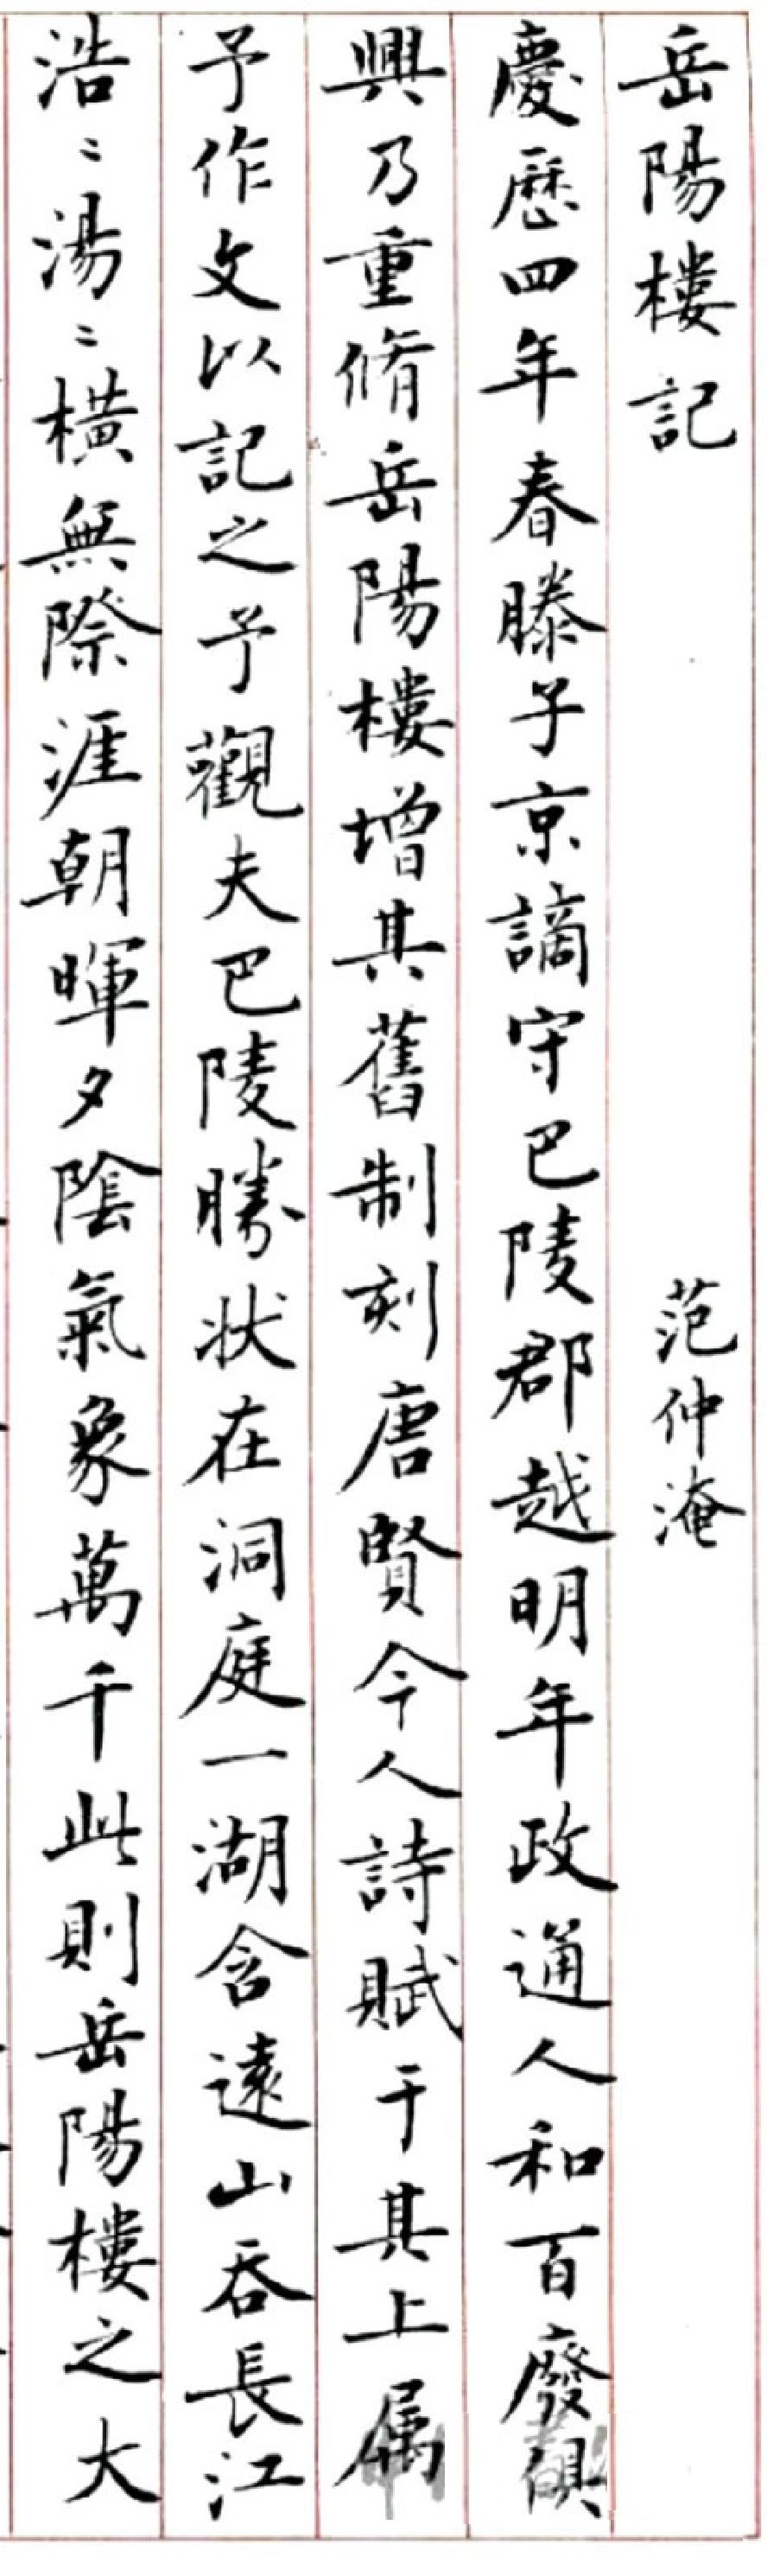 岳陽樓記 范仲淹
慶歷四年春滕子京謫守巴陵郡越明年政通人和百廢俱
興乃重脩岳陽樓增其舊制刻唐賢今人詩賦于其上属
予作文以記之予觀夫巴陵勝狀在洞庭一湖含遠山吞長江
浩〻湯〻橫無際涯朝暉夕陰氣象萬千此則岳陽樓之大